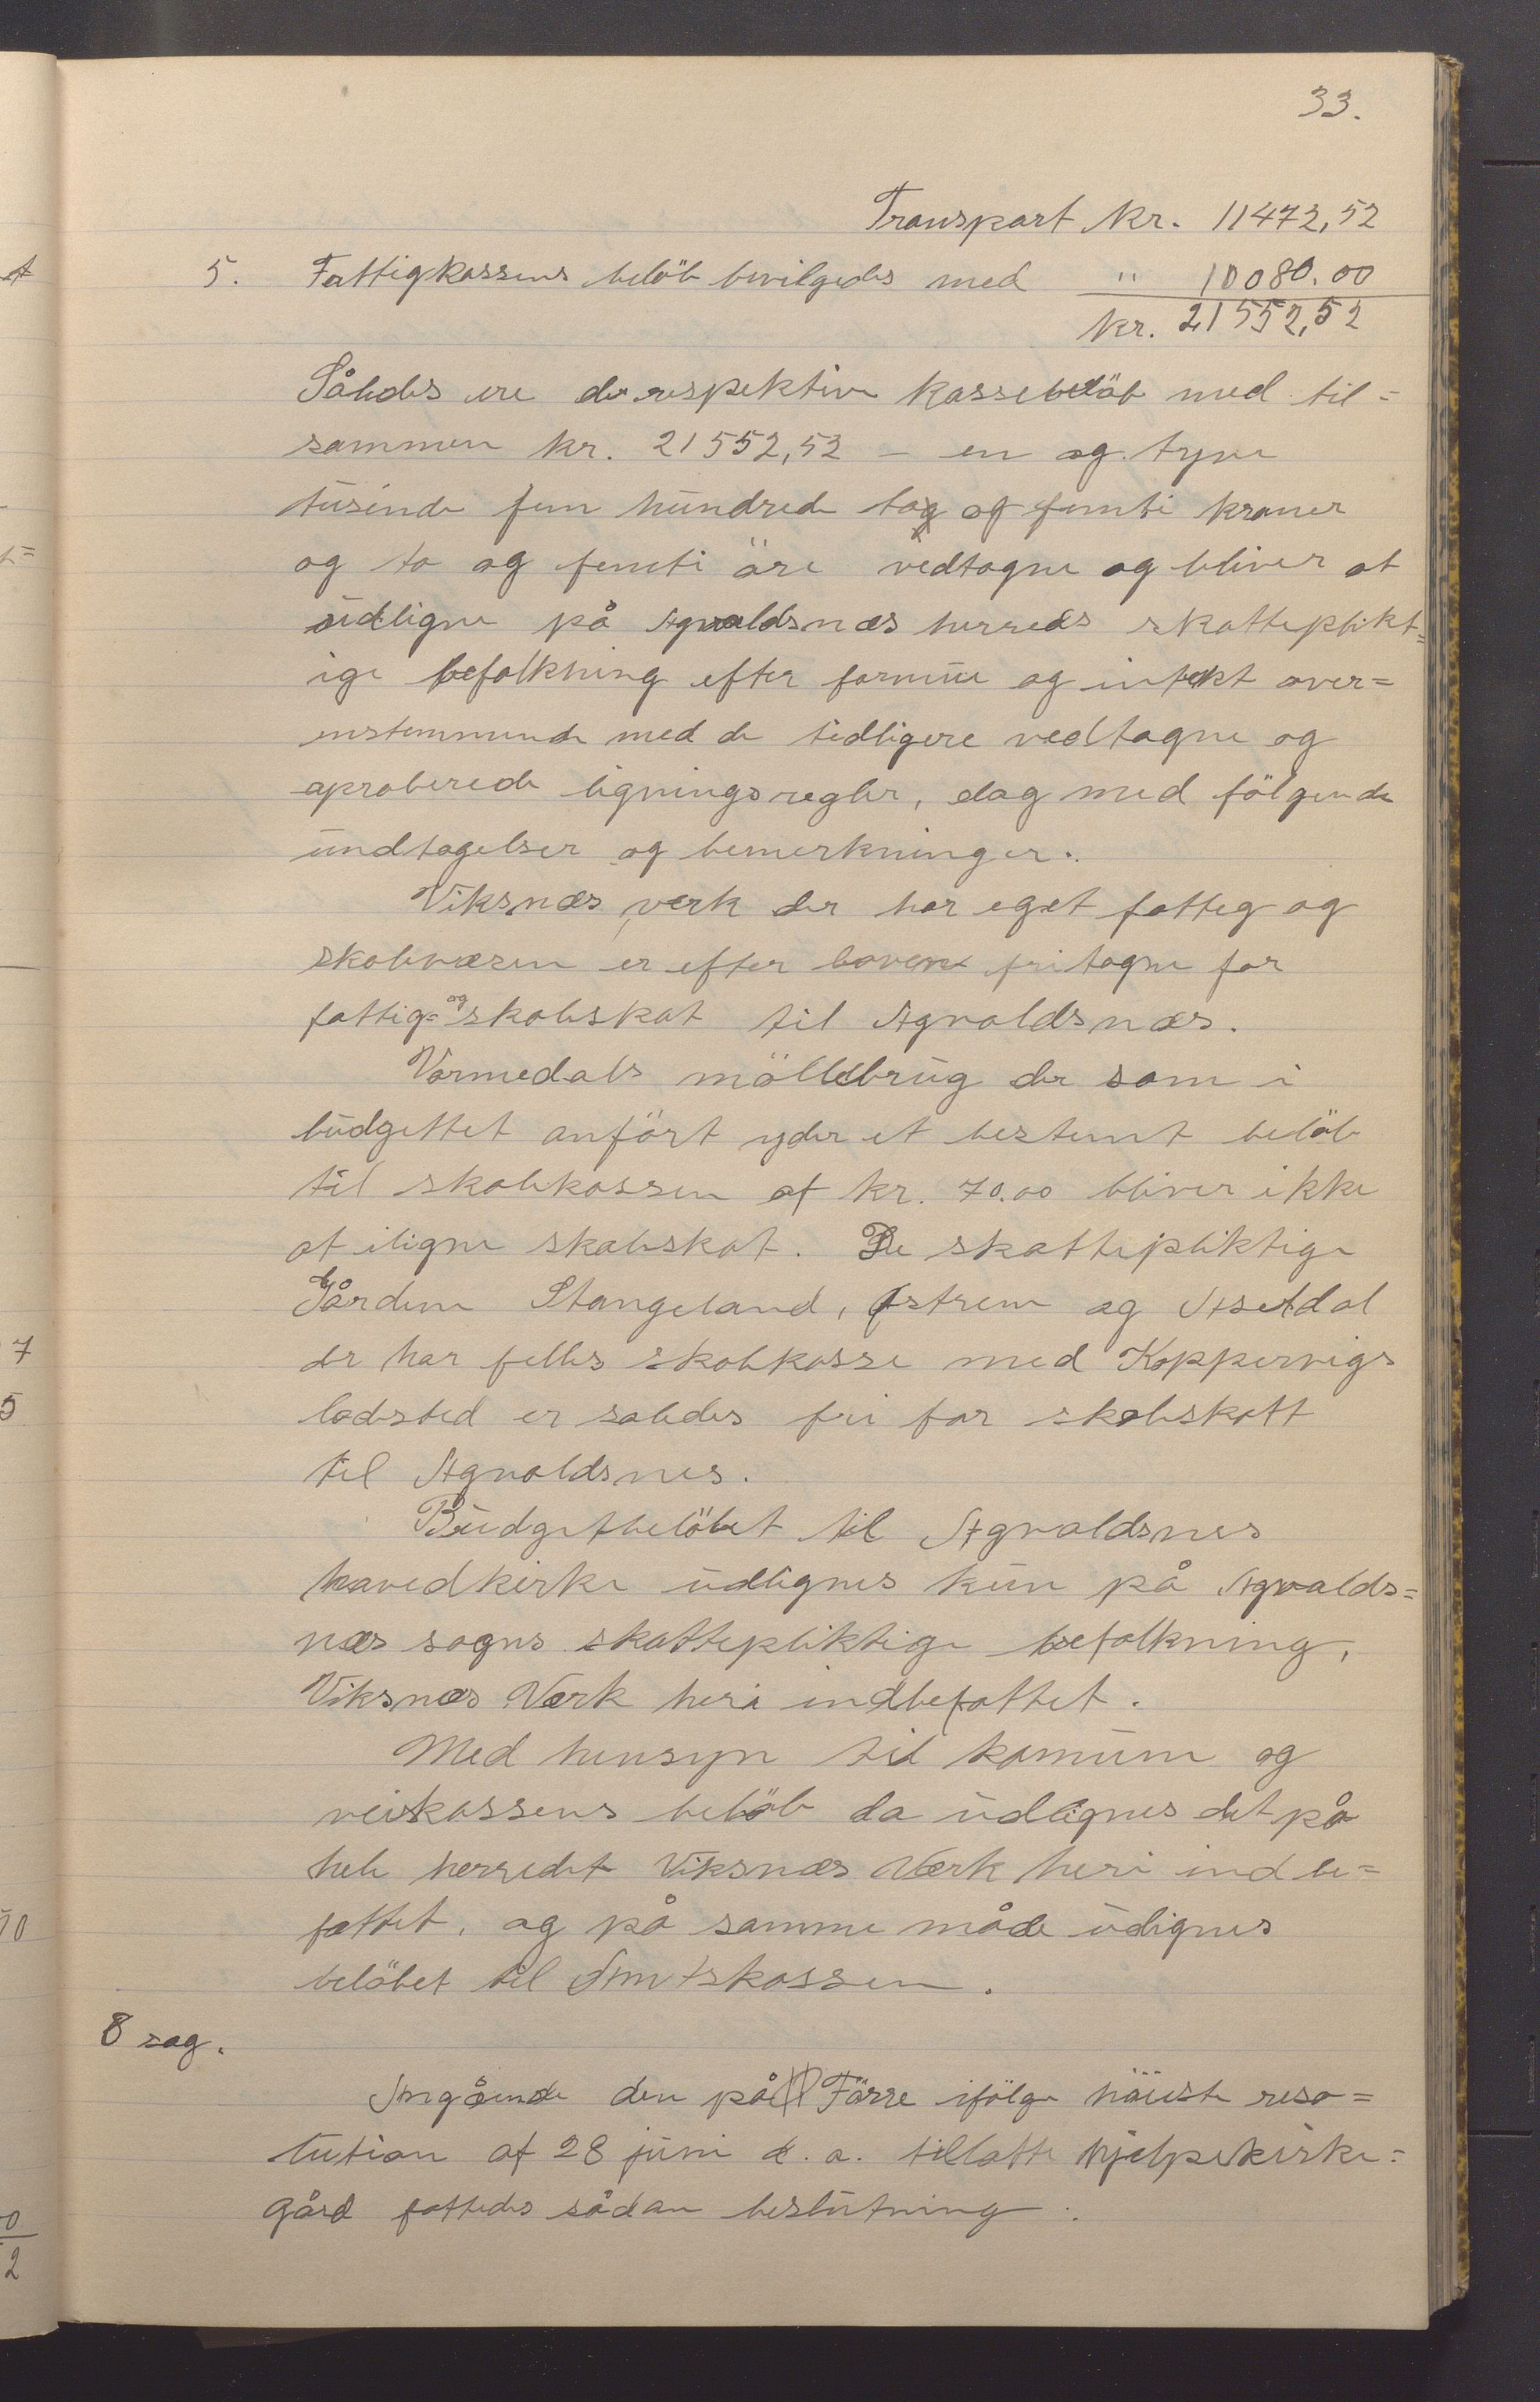 33.
Transport Kr. 11472,52
5. Fattigkassens belöb bevilgedes med " 10080.00
kr. 21552,52
Således ere de respektive kassebelöb med til=
sammen kr. 21552,52 – en og tyve
tusinde fem hundrede to og femti kroner
og to og femti öre vedtagne og bliver at
udligne på Agvaldsnæs herreds skatteplikt=
ige befolkning efter formue og intekt over=
enstemmende med de tidligere vedtagne og
aproberede ligningsregler, dog med fölgende
undtagelser og bemerkninger.
Viksnæs verk der har eget fattig og
skolevæsen er efter loven fritagne for
fattig= og skoleskat til Agvaldsnæs.
Vormedals möllebrug der som i
budgettet anfört yder et bestemt belöb
til skolekassen af kr. 70.00 bliver ikke
at iligne skoleskat. De skattepliktige
Gårdene Stangeland, Østrem og Asetdal
der har felles skolekasse med Koppervigs
ladested er saledes fri for skoleskatt
til Agvaldsnes.
Budgetbelöbet til Agvaldsnes
hovedkirke udlignes kun på Agvalds=
næs sogns skattepliktige befolkning,
Viksnæs Værk heri indbefattet.
Med hensyn til komune og
veikassens belöb da udlignes det på
hele herredet Viksnæs Værk heri indbe=
fattet, og på samme måde udignes
belöbet til Amtskassen.
8 sag.
Angående den på Förre ifölge höieste reso=
lution af 28 juni d. a. tillatte hjelpekirke=
gård fattedes sådan beslutning:
7
5
0
2